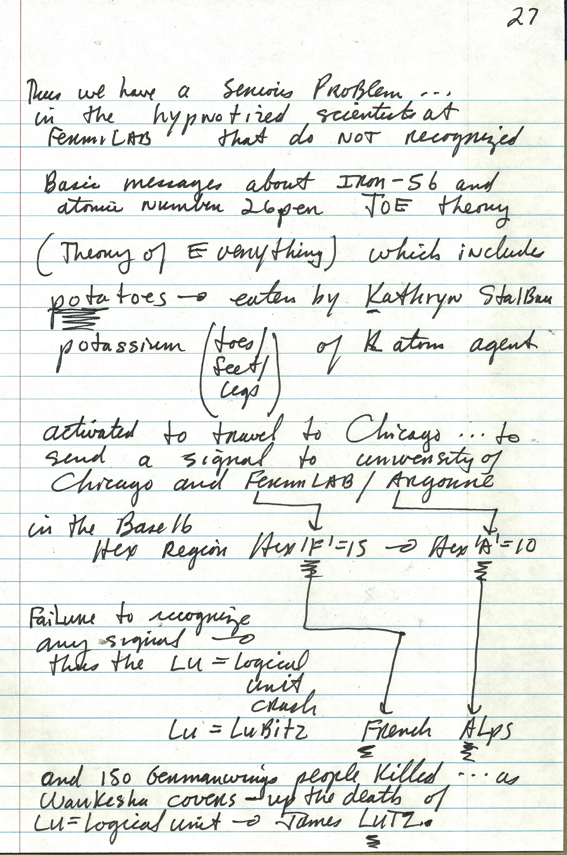 27
Thus we have a Serious PRoBlem ...
in the hypnotized scientists at
FermiLAB that do NOT recognized
Basic messages about IRon-56 and
atomic number 26 per TOE theory
(Theory of Everything) which includes
potatoes → eaten by Kathryn StalBau
potassium (toes/ feet/ legs) of K atom agent
activated to travel to Chicago ... to
send a signal to university of
Chicago and FermiLAB / Argonne
in the Base 16
Hex Region Hex 'F'=15 → Hex 'A'=10
Failure to recognize
any signal →
thus the LU = logical
unit
crash
Lu = LuBitz French ALps
and 150 Germanwings people killed ... as
Waukesha covers-up the death of
LU=Logical unit → James LUTZ.